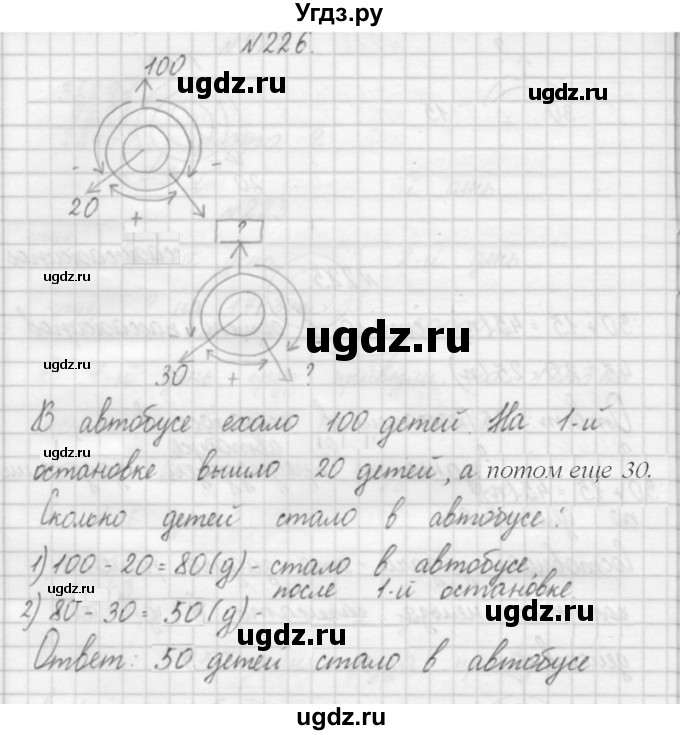 Угдз.ру
№226.
100
ugdz.ru
ugdz.ru
- -
20 +
?
ugdz.ru
ugdz.ru
ugdz.ru
30 + ?
В автобусе ехало 100 детей. На 1-й
ugdz.ru
остановке вышло 20 детей, а потом еще 30.
Сколько детей стало в автобусе?
1) 100 - 20 = 80 (д) - стало в автобусе
ugdz.ru
после 1-й остановке
2) 80 - 30 = 50 (д) -
ugdz.ru
ugdz.ru
Ответ: 50 детей стало в автобусе
ugdz.ru